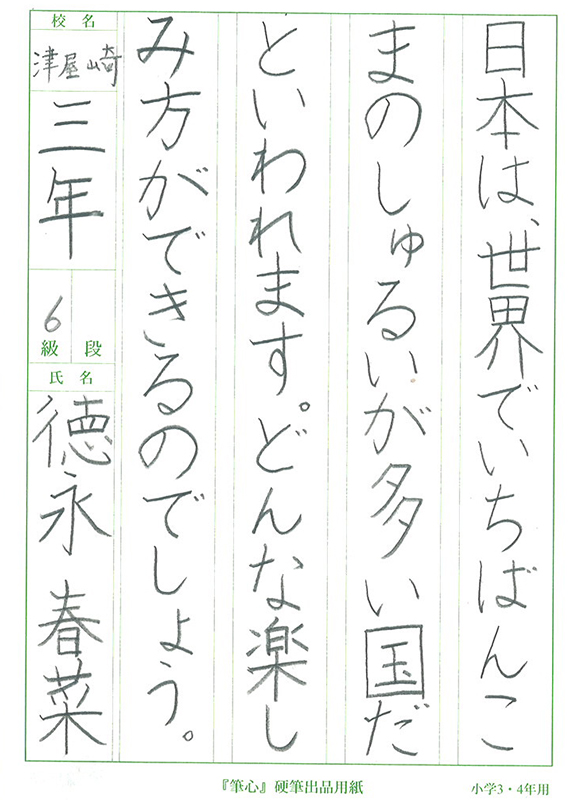 日本は、世界でいちばんこ
まのしゅるいが多い国だ
といわれます。どんな楽し
み方ができるのでしょう。
校名
津屋崎
三年
6
級 段
氏名
徳永 春菜
『筆心』硬筆出品用紙
小学3・4年用